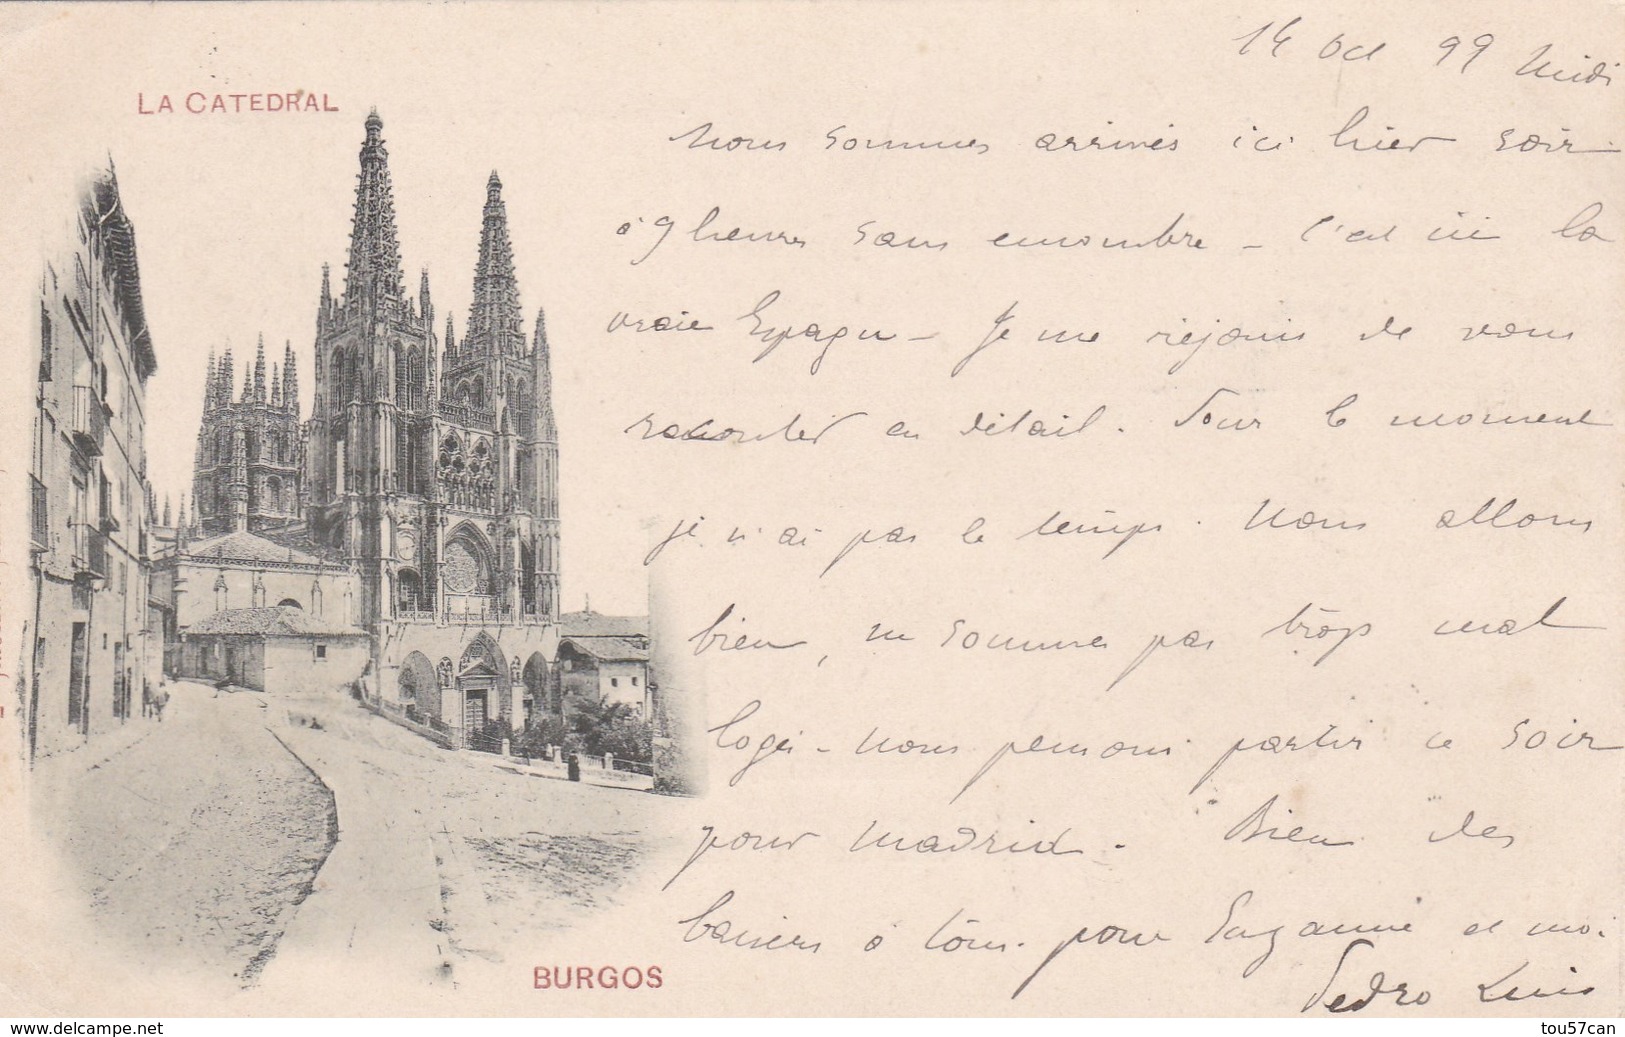 LA CATEDRAL
14 oct 99 Midi
Nous sommes arrivés ici hier soir
à 9 heures sans encombre - C'est ici la
vraie Espagne - Je me réjouis de vous
raconter en détail. Pour le moment
je n'ai pas le temps. Nous allons
bien, ne sommes pas trop mal
logés - Nous pensons partir ce soir
pour Madrid. Bien des
baisers à tous. pour Suzanne et moi.
Pedro Luis
BURGOS
www.delcampe.net
tou57can